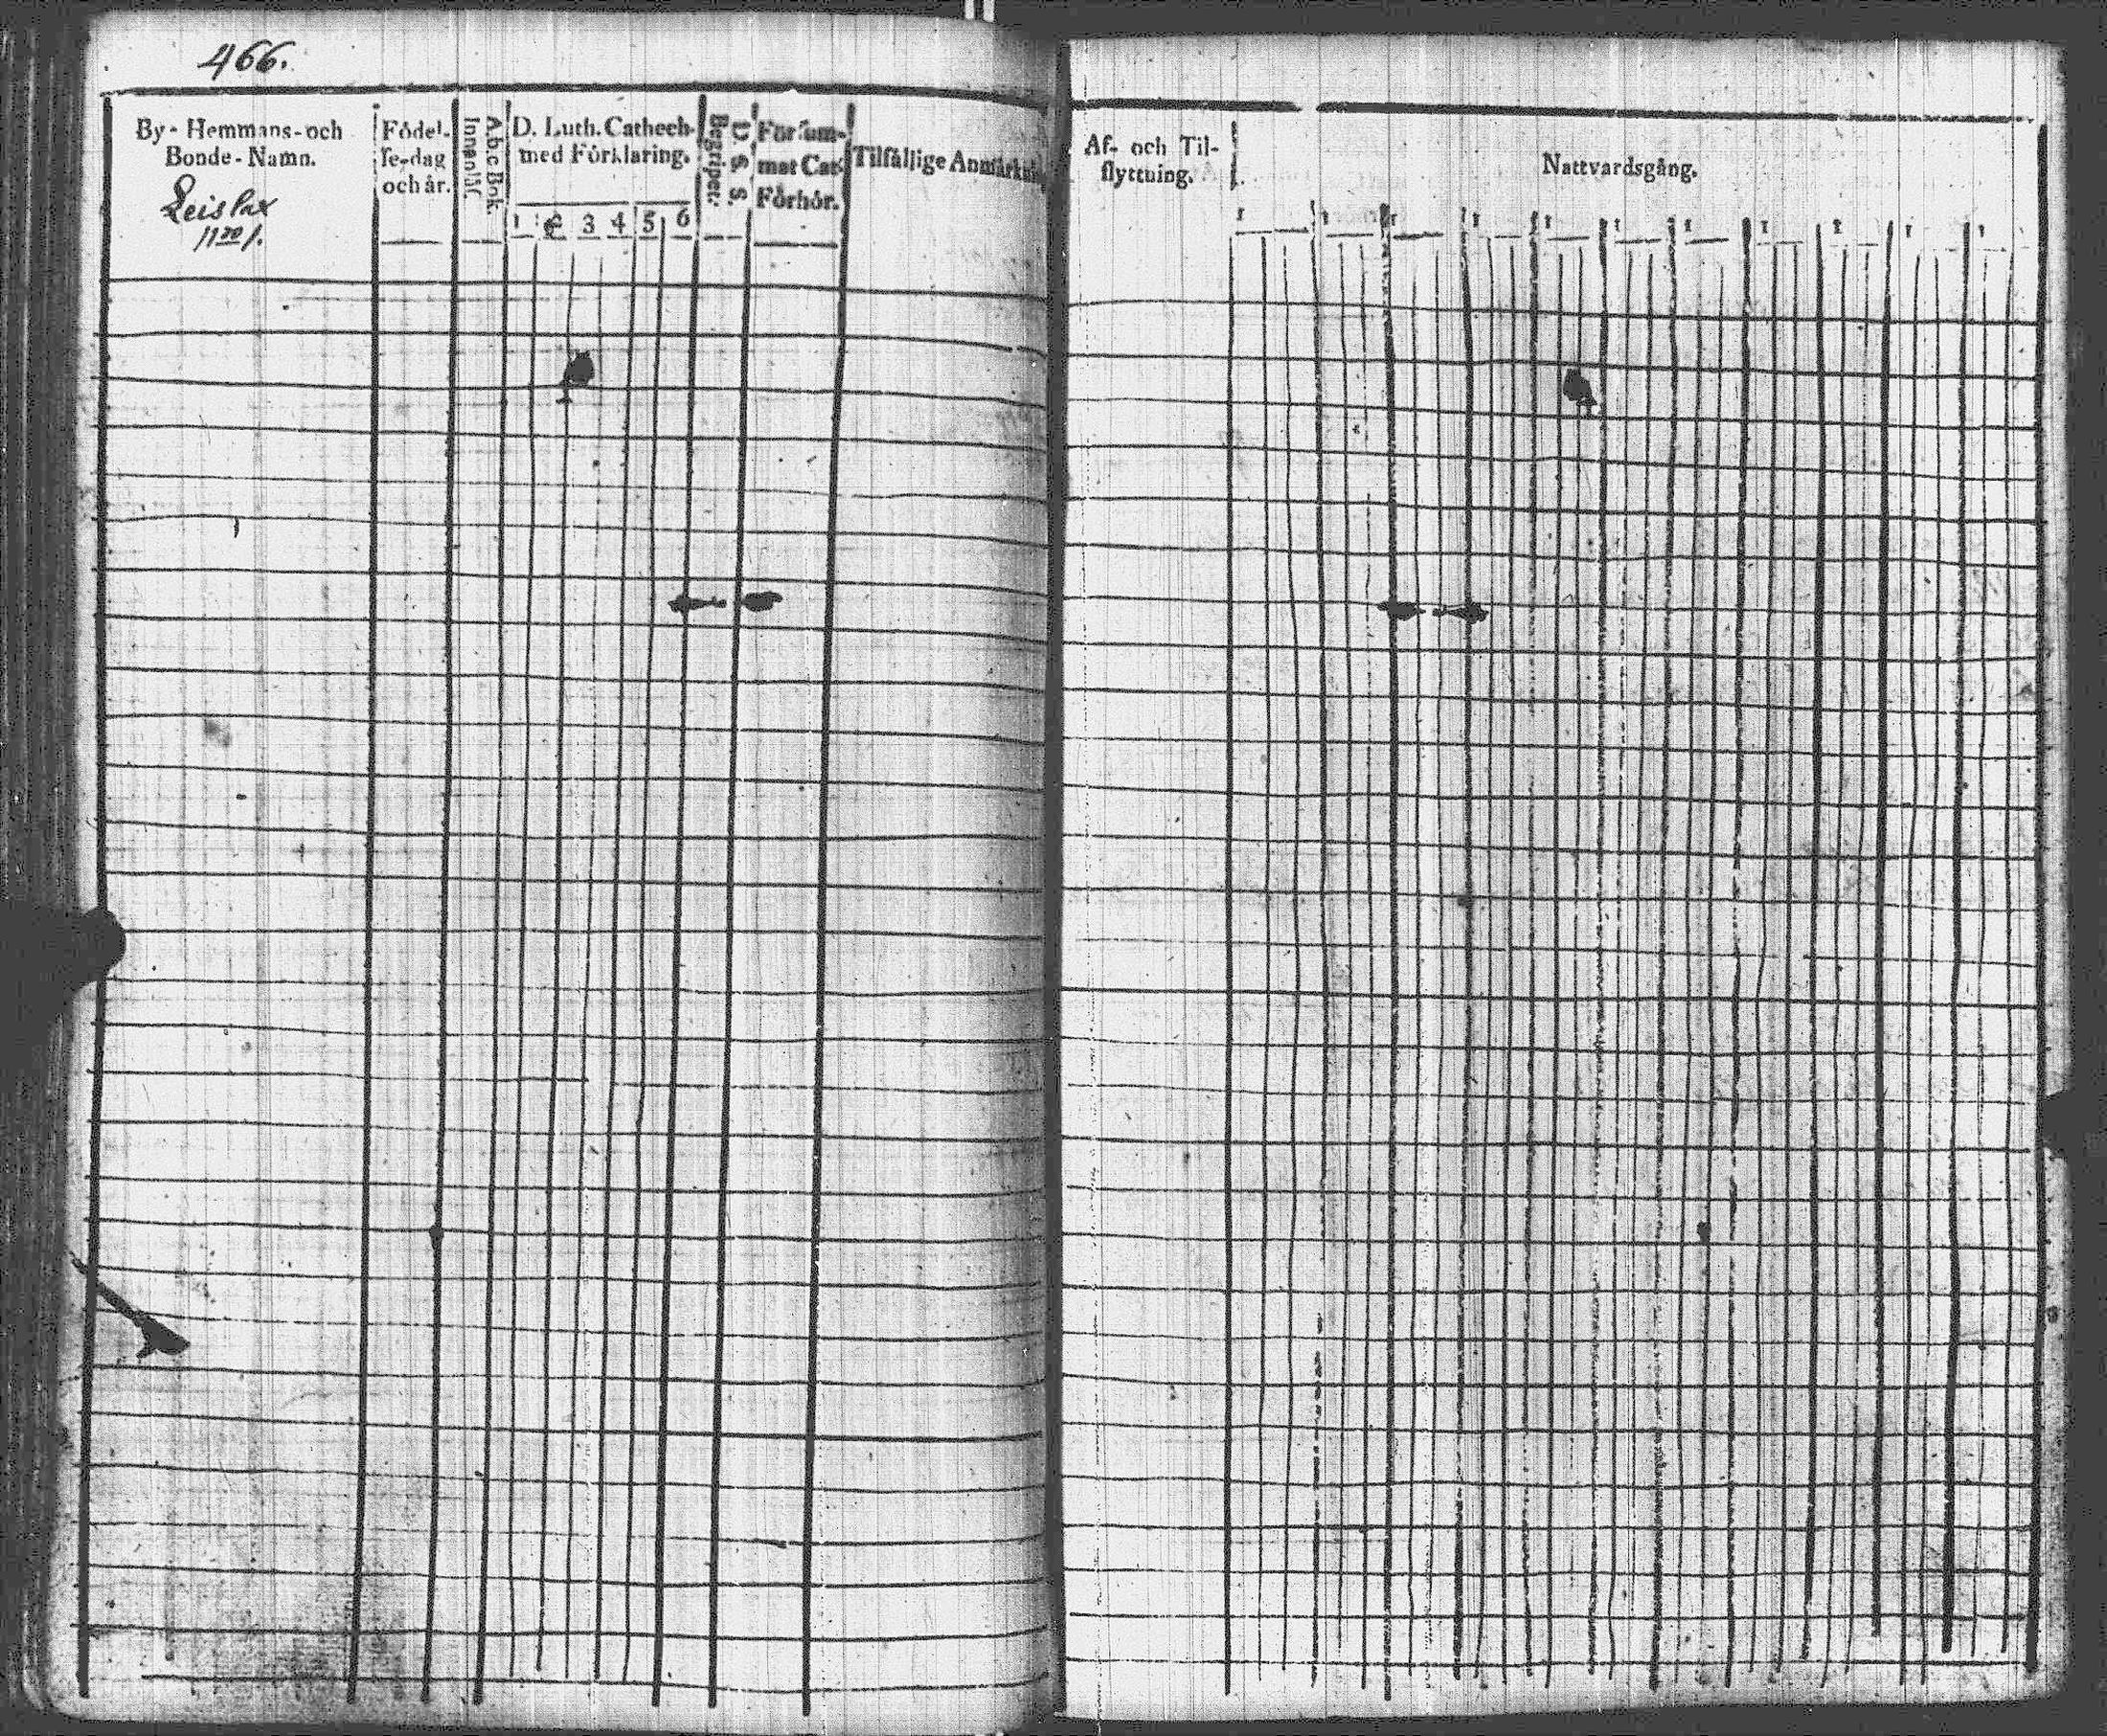 466.
By- Hemmans- och
Bonde- Namn.
Leislax
11
Fôdel-
se-dag
och år.
A.b.c Bok.
Innanläs.
D. Luth. Cathech-
med Fôrklaring.
1 2 3 4 5 6
D. S. S.
Begripet.
Försum-
mat Cat.
Fôrhôr.
Tilfällige Anmärkni
Af- och Til-
flyttning.
Nattvardsgång.
1 1 1 1 1 1 1 1 1 1 1